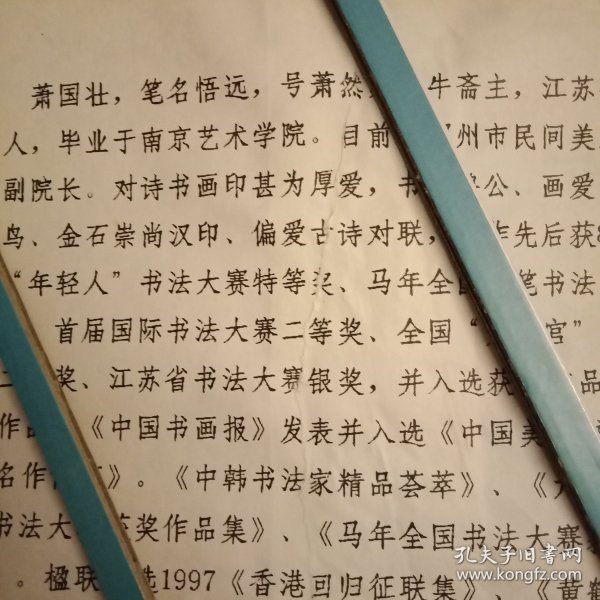 萧国壮，笔名悟远，号萧然 牛斋主，江苏
人，毕业于南京艺术学院。目前 州市民间美
副院长。对诗书画印甚为厚爱，书 公、画爱
鸟、金石崇尚汉印、偏爱古诗对联， 作先后获
“年轻人”书法大赛特等奖、马年全国 笔书法
首届国际书法大赛二等奖、全国“ 宫”
奖、江苏省书法大赛银奖，并入选获 品
作品 《中国书画报》发表并入选《中国美
名作 》。《中韩书法家精品荟萃》、《
书法大 获奖作品集》、《马年全国书法大赛
。楹联 选1997《香港回归征联集》、《黄鹤
孔夫子旧书网
www.kongfz.com